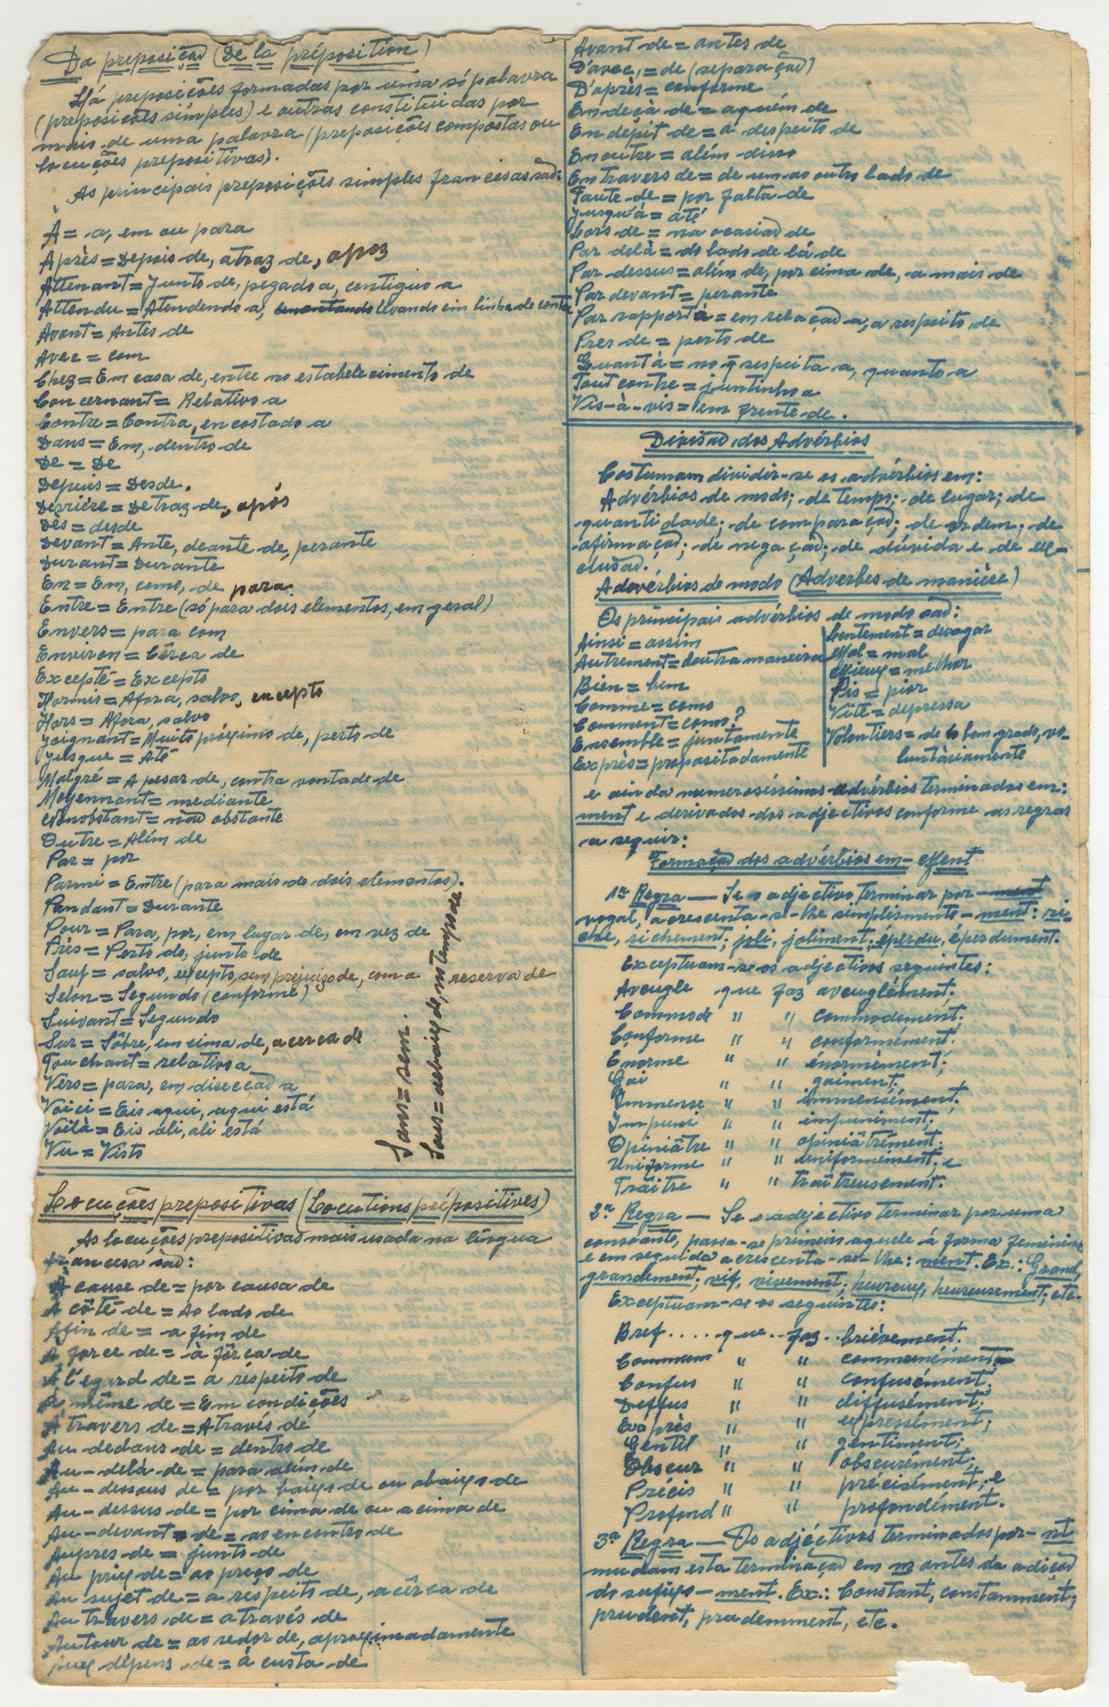 Da preposição (De la préposition)
Há preposições formadas por uma só palavra
(preposições simples) e outras constituídas por
mais de uma palavra (preposições compostas ou
locuções prepositivas).
As principais preposições simples francesas são:
À = a, em ou para
Après = Depois de, atraz de, apoz
Attenant = Junto de, pegado a, contiguo a
Attendu = Atendendo a, levando em linha de conta
Avant = Antes de
Avec = com
Chez = Em casa de, entre no estabelecimento de
Concernant = Relativo a
Contre = Contra, encostado a
Dans = Em, dentro de
De = De
Depuis = Desde.
Derrière = Detraz de, após
Dès = desde
Devant = Ante, deante de, perante
Durant = Durante
En = Em, como, de para.
Entre = Entre (só para dois elementos, em geral)
Envers = para com
Environ = Cêrca de
Excepté = Excepto
Hormis = Afora, salvo, excepto
Hors = Afora, salvo
Joignant = Muito próximo de, perto de
Jusque = Até
Malgré = Apesar de, contra vontade de
Moyennant = mediante
Nonobstant = não obstante
Outre = Além de
Par = por
Parmi = Entre (para mais de dois elementos).
Pendant = Durante
Pour = Para, por, em lugar de, em vez de
Près = Perto de, junto de
Sauf = salvo, excepto, sem prejuizo de, com a reserva de
Selon = Segundo (conforme)
Suivant = Segundo
Sur = Sôbre, em cima de, acerca de
Touchant = relativo a
Vers = para, em direcção a
Voici = Eis aqui, aqui está
Voilà = Eis ali, ali está
Vu = Visto
Sans = sem.
Sous = debaixo de, no tempo de
Locuções prepositivas (Locutions prépositives)
As locuções prepositivas mais usada na língua
francesa são:
À cause de = por causa de
À côté de = Ao lado de
Afin de = a fim de
À force de = à fôrça de
À l'egard de = a respeito de
À même de = Em condições
À travers de = Através de
Au dedans de = dentro de
Au-delà de = para além de
Au-dessous de = por baixo de ou abaixo de
Au-dessus de = por cima de ou acima de
Au-devant de = ao encontro de
Aupres de = junto de
Au prix de = ao preço de
Au sujet de = a respeito de, acêrca de
Au travers de = através de
Autour de = ao redor de, aproximadamente
Aux dépens de = à custa de
Avant de = antes de
D'avec = de (separação)
D'après = conforme
En deçà de = aquém de
En dépit de = a despeito de
En outre = além disso
En travers de = de um ao outro lado de
Faute de = por falta de
Jusqu'à = até
Lors de = na ocasião de
Par delà = do lado de lá de
Par dessus = além de, por cima de, a mais de
Par devant = perante
Par rapport à = em relação a, a respeito de
Pres de = perto de
Quant à = no q̄ respeita a, quanto a
Tout contre = juntinho a
Vis-à-vis = em frente de.
Divisão dos Advérbios
Costumam dividir-se os advérbios em:
Advérbios de modo; de tempo; de lugar; de
quantidade; de comparação; de ordem; de
afirmação; de negação; de dúvida e de ex-
clusão.
Advérbios de modo (Adverbes de manière)
Os principais advérbios de modo são:
Ainsi = assim
Autrement = doutra maneira
Bien = bem
Comme = como
Comment = como?
Ensemble = juntamente
Exprès = propositadamente
Lentement = devagar
Mal = mal
Mieux = melhor
Pis = pior
Vite = depressa
Volontiers = de bom grado, vo-
luntàriamente
e ainda numerosíssimos advérbios terminados em:
ment e derivados dos adjectivos conforme as regras
a seguir:
Formação dos advérbios em - Ment
1ª Regra — Se o adjectivo terminar por ment
vogal, acrescenta-se-lhe simplesmente - ment: ri-
che, richement; joli, joliment; éperdu, éperdument.
Exceptuam-se os adjectivos seguintes:
Aveugle que faz aveuglément;
Commode " " commodément.
Conforme " " conformément.
Enorme " " énormément;
Gai " " gaiment;
Immense " " immensément.
Impune " " impunément;
Opiniâtre " " opiniâtrément.
Uniforme " " uniformément; e
Traître " " traîtreusement.
2ª Regra — Se o adjectivo terminar por uma
consoante, passa-se primeiro aquele à forma feminina
e em seguida acrescenta-se-lhe: ment. Ex.: Grand,
grandement; vif, vivement; heureux, heureusement; etc.
Exceptuam-se os seguintes:
Bref .... que .. faz .. brièvement.
Commun " " communément;
Confus " " confusément;
Diffus " " diffusément;
Exprès " " expressément;
Gentil " " gentiment;
Obscur " " obscurément;
Précis " " précisément; e
Profond " " profondément.
3ª Regra — Os adjectivos terminados por - nt
mudam esta terminação em m antes da adição
do sufixo - ment. Ex.: Constant, constamment;
prudent, prudemment, etc.